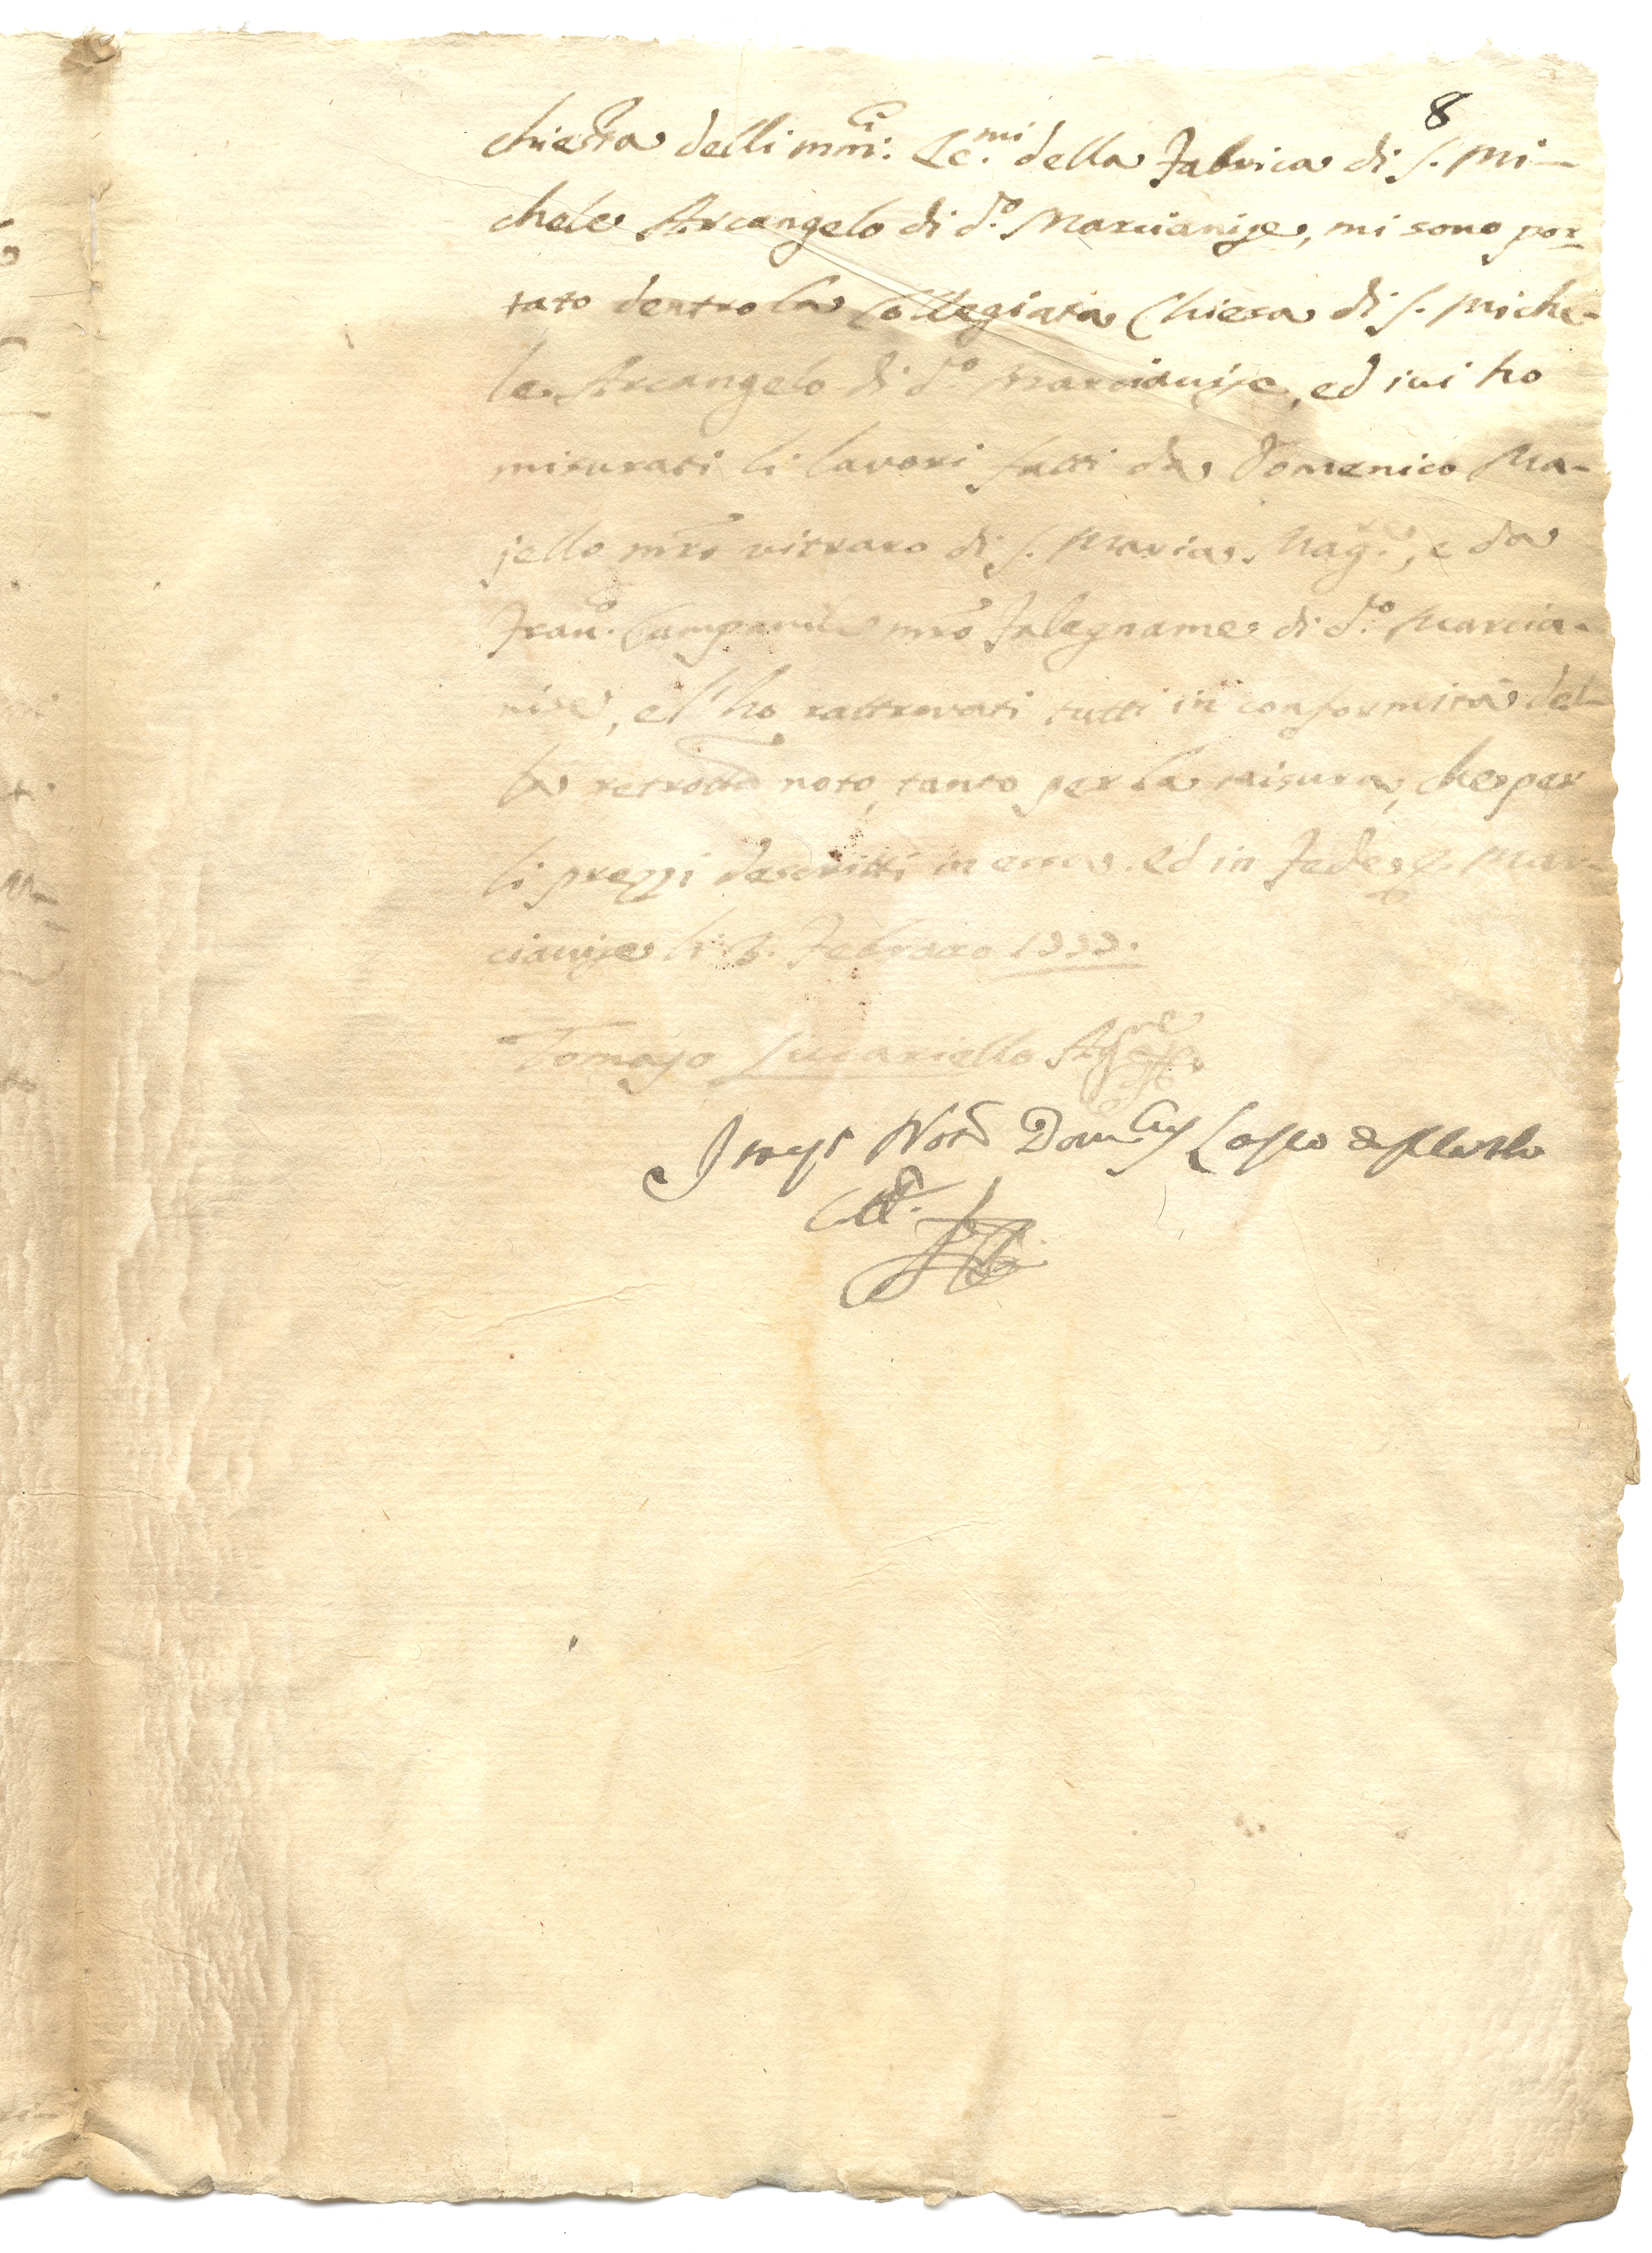 8
chiesta delli mm:ci Ec.mi della Fabrica di S. Mi-
chele Arcangelo di d.o Marcianise, mi sono por-
tato dentro la Collegiata Chiesa di S. Miche-
le Arcangelo di d.o Marcianise, ed ivi ho
misurati li lavori fatti da Domenico Ma-
jello mro vitraro di S. Maria Mag.re, e da
Fran.co Campanile mro Falegname di d.o Marcia-
nise, e l'ho rattrovati tutti in conformità del-
la retrodta nota, tanto per la misura, che per
li prezzi descritti in essa. ed in fede Mar-
cianise li 3. Febraro 1777.
Tomaso Lucariello